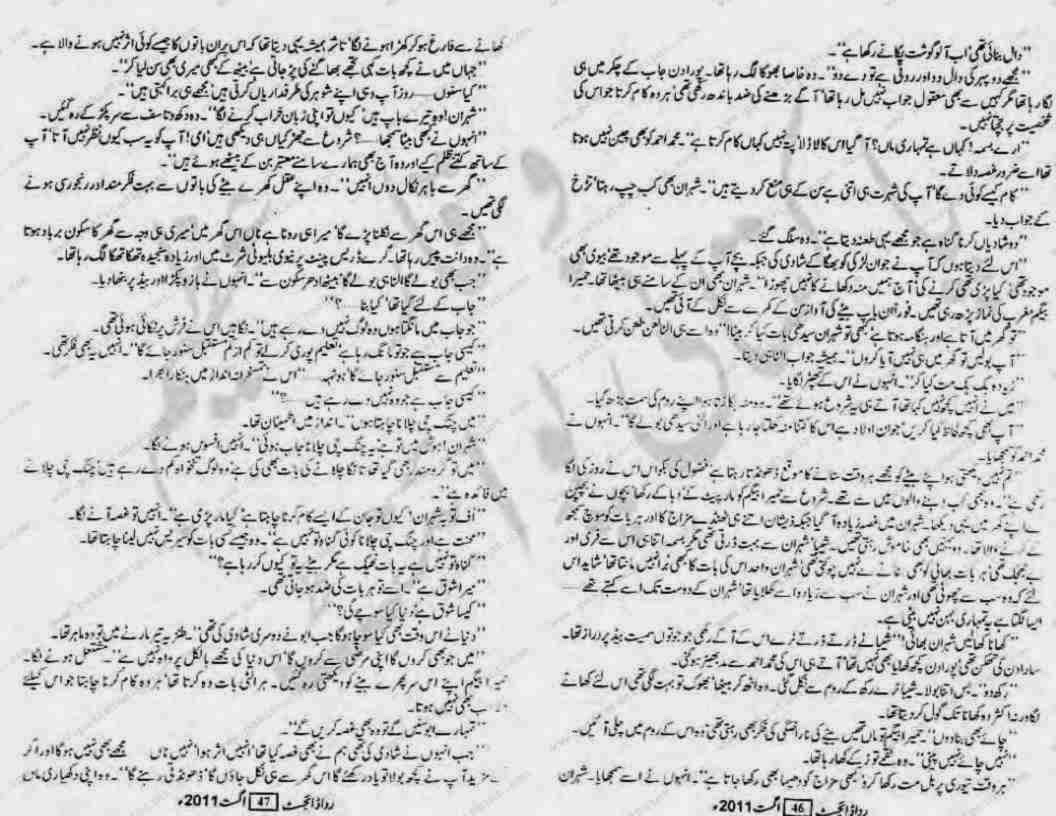 "دال بنائی تھی اب آلو گوشت پکانے رکھا ہے"۔
"مجھے دوپہر کی دال دو اور روٹی ہے تو دے دو"۔ وہ خاصا بھوکا لگ رہا تھا۔ پورا دن جاب کے چکر میں ہی
لگا رہا تھا مگر کہیں سے بھی معقول جواب نہیں مل رہا تھا' آگے بڑھنے کی ضد باندھ رکھی تھی' ہر وہ کام کرتا جو اس کی
شخصیت پر جچتا نہیں۔
"ارے بسمہ! کہاں ہے تمہاری ماں؟ آ گیا اس کا لاڈلا' پتہ نہیں کہاں کام کرتا ہے"۔ محمد احمد کو بھی چین نہیں ہوتا
تھا اسے ضرور غصہ دلاتے۔
"کام کیسے کوئی دے گا' آپ کی شہرت ہی اتنی ہے سن کے ہی منع کر دیتے ہیں"۔ شہران بھی کب چپ رہتا' تڑخ
کے جواب دیا۔
"دو شادیاں کرنا گناہ ہے جو مجھے یہی طعنہ دیتا ہے"۔ وہ سلگ گئے۔
"اس لئے دیتا ہوں کہ آپ نے جوان لڑکی کو بھگا کے شادی کی جبکہ بچے آپ کے پہلے سے موجود تھے' بیوی بھی
موجود تھی' کیا پڑی تھی کرنے کی' آج ہمیں منہ دکھانے کا نہیں چھوڑا"۔ شہران بھی ان کے سامنے ہی بیٹھا تھا۔ حمیرا
بیگم مغرب کی نماز پڑھ رہی تھیں۔ فوراً ان باپ بیٹے کی آواز سن کے کمرے سے نکل کے آئی تھیں۔
"تو گھر میں آتا ہے اور ہنگامہ ہوتا ہے' کبھی تو شہران سیدھی بات کیا کر بیٹا!" وہ اسے ہی النا طعن طعن کرتی تھیں۔
"آپ بولیں تو گھر میں ہی نہیں آیا کروں"۔ ہمیشہ جواب الٹا ہی دیتا۔
"زیادہ بک بک مت کیا کر"۔ انہوں نے اس کے تھپڑ لگایا۔
"میں نے انہیں کچھ نہیں کہا تھا آتے ہی یہ شروع ہوئے تھے"۔ وہ منہ بگاڑتا ہوا اپنے روم کی سمت بڑھ گیا۔
"آپ بھی کچھ لحاظ کیا کریں' جوان اولاد ہے اس کا کتنا منہ کھلتا جا رہا ہے اور الٹی سیدھی بولے گا"۔ انہوں نے
محمد احمد کو سمجھایا۔
"تم نہیں دیکھتی ہو اپنے بیٹے کو مجھے ہر وقت سنانے کا موقع ڈھونڈتا رہتا ہے' فضول کی بکواس اس نے روز کی لگا
رکھی ہے"۔ وہ بھی کب دبنے والوں میں سے تھے۔ شروع سے حمیرا بیگم کو مار پیٹ کے دبا کے رکھا' بچوں نے بچپن
سے اپنے گھر میں یہی دیکھا۔ شہران میں غصہ زیادہ آ گیا جبکہ ذیشان اتنے ہی ٹھنڈے مزاج کا اور ہر بات کو سوچ سمجھ
کے کرنے والا تھا۔ دو بہنیں بھی خاموش رہتی تھیں۔ شیبا' شہران سے بہت ڈرتی تھی مگر بسمہ اتنا ہی اس سے فری اور
بے جھجک تھی' ہر بات بھائی کو بھی سنانے سے نہیں چوکتی تھی' شہران واحد اس کی بات کا بھی برا نہیں مانتا تھا' شاید اس
لئے کہ وہ سب سے چھوٹی تھی اور شہران نے سب سے زیادہ اسے کھلایا تھا' شہران کے دوست تک اسے کہتے تھے
ایسا لگتا ہے یہ تمہاری بہن نہیں بیٹی ہے۔
"کھانا کھا لیں شہران بھائی!" شیبا نے ڈرتے ڈرتے ٹرے اس کے آگے رکھی جو جوتوں سمیت بیڈ پر دراز تھا۔
سارا دن کی تھکن تھی' پورا دن کچھ کھایا بھی نہیں تھا' آتے ہی اس کی محمد احمد سے مڈبھیڑ ہو گئی۔
"رکھ دو"۔ بس اتنا بولا۔ شیبا ٹرے رکھ کے روم سے نکل گئی۔ وہ اٹھ کر بیٹھا' بھوک تو بہت لگی تھی اس لئے کھانے
لگا ورنہ اکثر وہ کھانا تک گول کر دیتا تھا۔
"چائے بھی بنا دوں"۔ حمیرا بیگم تو ماں تھیں بیٹے کی ناراضگی کی فکر بھی رہتی تھی وہ اس کے روم میں چلی آئیں۔
"نہیں چائے نہیں پینی"۔ وہ لقمے توڑ کے کھا رہا تھا۔
"ہر وقت تیوری پر بل مت رکھا کرو' کبھی مزاج کو دھیما بھی رکھا جاتا ہے"۔ انہوں نے اسے سمجھایا۔ شہران
رداڈائجسٹ 46 اگست 2011ء
کھانے سے فارغ ہو کر کھڑا ہونے لگا' تاثر ہمیشہ یہی دیتا تھا کہ اس پر ان باتوں کا جیسے کوئی اثر نہیں ہونے والا ہے۔
"جہاں میں نے کچھ بات کہی تجھے بھاگنے کی پڑ جاتی ہے' بیٹھ کے کبھی میری بھی سن لیا کر"۔
"کیا سنوں روز آپ وہی اپنے شوہر کی طرفداریاں کرتی ہیں' مجھے ہی برا کہتی ہیں"۔
"شہران! وہ تیرے باپ ہیں' کیوں تو اپنی زبان خراب کرنے لگا"۔ وہ دکھ و تاسف سے سر پکڑ کے رہ گئیں۔
"انہوں نے کبھی بیٹا سمجھا؟ شروع سے جھڑکیاں ہی دیکھی ہیں' امی! آپ کو یہ سب کیوں نظر نہیں آتا' آپ
کے ساتھ کتنے ظلم کیے اور وہ آج بھی ہمارے سامنے معتبر بن کے بیٹھے ہوئے ہیں"۔
"گھر سے باہر نکال دوں انہیں"۔ وہ اپنے عقل کھرے بیٹے کی باتوں سے بہت فکرمند اور رنجور سی ہونے
لگی تھیں۔
"مجھے ہی اس گھر سے نکلنا پڑے گا' میرا ہی رونا ہے ناں اس گھر میں' میری ہی وجہ سے گھر کا سکون برباد ہوتا
ہے"۔ وہ دانت پیس رہا تھا۔ گرے ڈریس پینٹ پر نیوی بلیو ٹی شرٹ میں اور زیادہ سنجیدہ تھکا تھکا لگ رہا تھا۔
"جب بھی بولے گا الٹا ہی بولے گا' بیٹھ ادھر سکون سے"۔ انہوں نے بازو پکڑا اور بیڈ پر بٹھا دیا۔
"جاب کے لئے گیا تھا' کیا بنا؟"
"جو جاب میں مانگتا ہوں وہ لوگ نہیں دے رہے ہیں"۔ نگاہیں اس نے فرش پر ٹکائی ہوئی تھی۔
"کیسی جاب ہے جو تو مانگ رہا ہے' تعلیم پوری کر لے تو کم از کم مستقبل سنور جائے گا"۔ انہیں یہ بھی فکر تھی۔
"تعلیم سے مستقبل سنور جائے گا' ہونہہ" اس نے تمسخرانہ انداز میں ہنکارا بھرا۔
"کیسی جاب ہے جو وہ نہیں دے رہے ہیں؟"
"میں چنگ چی چلانا چاہتا ہوں"۔ انداز میں اطمینان تھا۔
"شہران! ہوش میں تو ہے' یہ چنگ چی چلانا جاب ہوئی"۔ انہیں افسوس ہونے لگا۔
"میں تو گرو مندر بھی گیا تھا' تانگا چلانے کی بات بھی کی ہے' وہ لوگ تنخواہ کم دے رہے ہیں' چنگ چی چلانے
میں فائدہ ہے"۔
"اف تو یہ شہران! کیوں تو جان کے ایسے کام کرنا چاہتا ہے' کیا مار پڑی ہے"۔ انہیں تو غصہ آنے لگا۔
"محنت ہے اور چنگ چی چلانا کوئی گناہ تو نہیں ہے"۔ وہ جیسے کسی بات کو سیریس نہیں لینا چاہتا تھا۔
"گناہ تو نہیں ہے یہ بات ٹھیک ہے مگر بیٹے یہ تو کیوں کر رہا ہے؟"
"میرا شوق ہے"۔ اسے تو ہر بات کی ضد ہو جاتی تھی۔
"کیسا شوق ہے' دنیا کیا سوچے گی؟"
"دنیا نے اس وقت بھی کیا سوچا ہو گا جب ابو نے دوسری شادی کی تھی"۔ طنزیہ تیر مارنے میں تو وہ ماہر تھا۔
"میں جو بھی کروں گا اپنی مرضی سے کروں گا' اس دنیا کی مجھے بالکل پرواہ نہیں ہے"۔ مشتعل ہونے لگا۔
حمیرا بیگم اپنے اس سرپھرے بیٹے کو دیکھتی رہ گئیں۔ ہر الٹی بات وہ کرتا تھا' ہر وہ کام کرنا چاہتا جو اس کیلئے
بھی نہیں ہوتا۔
"تمہارے ابو سنیں گے تو وہ بھی غصہ کریں گے"۔
"جب انہوں نے شادی کی تھی ہم نے بھی غصہ کیا تھا' انہیں اثر ہوا' نہیں ناں مجھے بھی نہیں ہو گا اور اگر
مزید آپ نے کچھ بولا تو یاد رکھیے گا اس گھر سے ہی نکل جاؤں گا' ڈھونڈتی رہیے گا"۔ وہ اپنی دکھیاری ماں
رداڈائجسٹ 47 اگست 2011ء